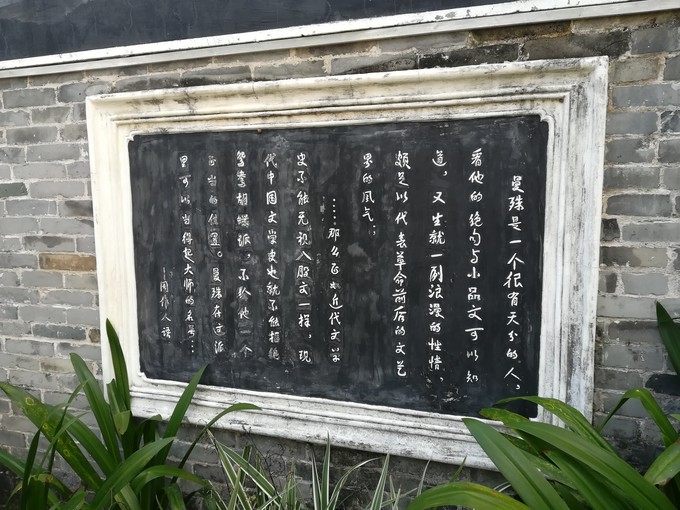 曼殊是一个很有天分的人，
看他的绝句与小品文可以知
道，又生就一副浪漫的性情，
颇足以代表革命前后的文艺
界的风气；
……那么正如近代文学
史不能无视八股文一样，现
代中国文学史也就不能拒绝
鸳鸯胡蝶派，不给他一个
正当的位置。曼殊在这派
里可以当得起大师的名号…
—周作人语